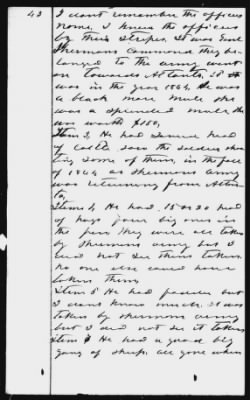 43
I dont remember the officers
name, I knew the officers
by their stripes. It was Genl
Shermans command they be
longed to the army went
on towards Atlanta, it
was in the year 1864, he was
a black mare mule she
was a splendid mule she
was worth $150,
Item 3, He had some head
of cattle saw the soldiers shoo
ting some of them, in the fall
of 1864 as Shermans army
was returning from Atlan
ta,
Item 4, He had 15 or 20 head
of hogs four big ones in
the pen they were all taken
by Shermans army but I
did not see them taken
no one else could have
taken them,
Item 5 He had fodder but
I dont know much. It was
taken by Shermans army
but I did not see it taken,
Item 7 He had a good big
gang of sheep. all gone when